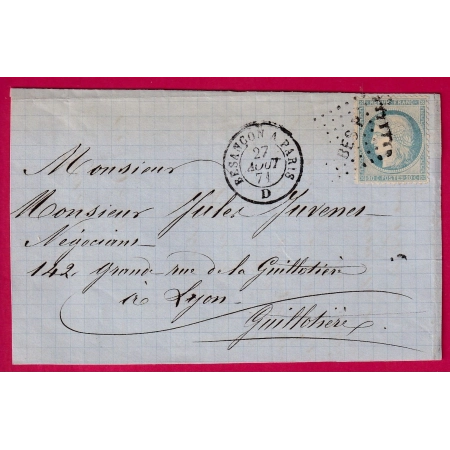 BESANÇON A PARIS
27
AOUT
71
D
BES P
20 C POSTES 20 C
Monsieur
Monsieur Jules Juvenes
Négociant
142 Grande rue de la Guillotière
à Lyon
Guillotière.